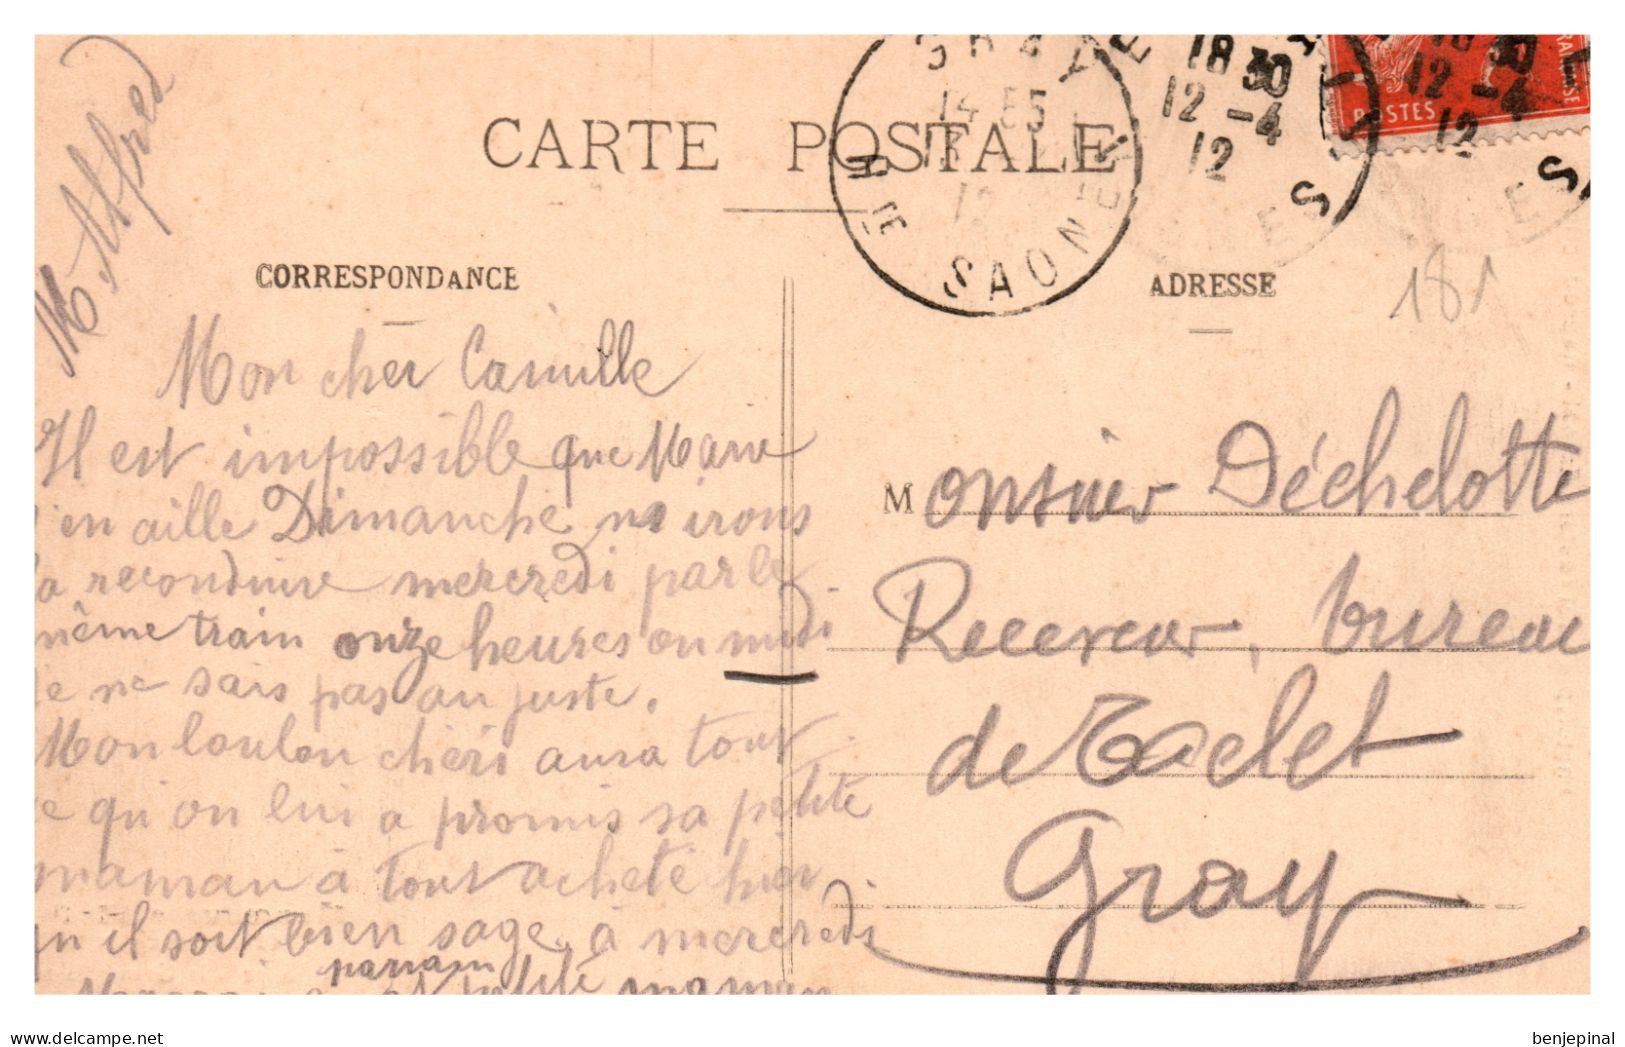 CARTE POSTALE
CORRESPONDANCE
ADRESSE
GRAY
14 55
12
HTE SAONE
18 30
12 -4
12
18 30
12 -4
12
POSTES
181
M Alfred
Mon cher Camille
Il est impossible que Marie
s'en aille Dimanche ns irons
la reconduire mercredi par le
même train onze heures ou midi
je ne sais pas au juste.
Mon loulou chéri aura tout
ce qu'on lui a promis sa petite
maman a tout acheté hier
qu'il soit bien sage, à mercredi
parrain
et petite maman
Monsieur Déchelotte
Receveur, bureau
de
Gray
benjepinal
https://www.delcampe.net